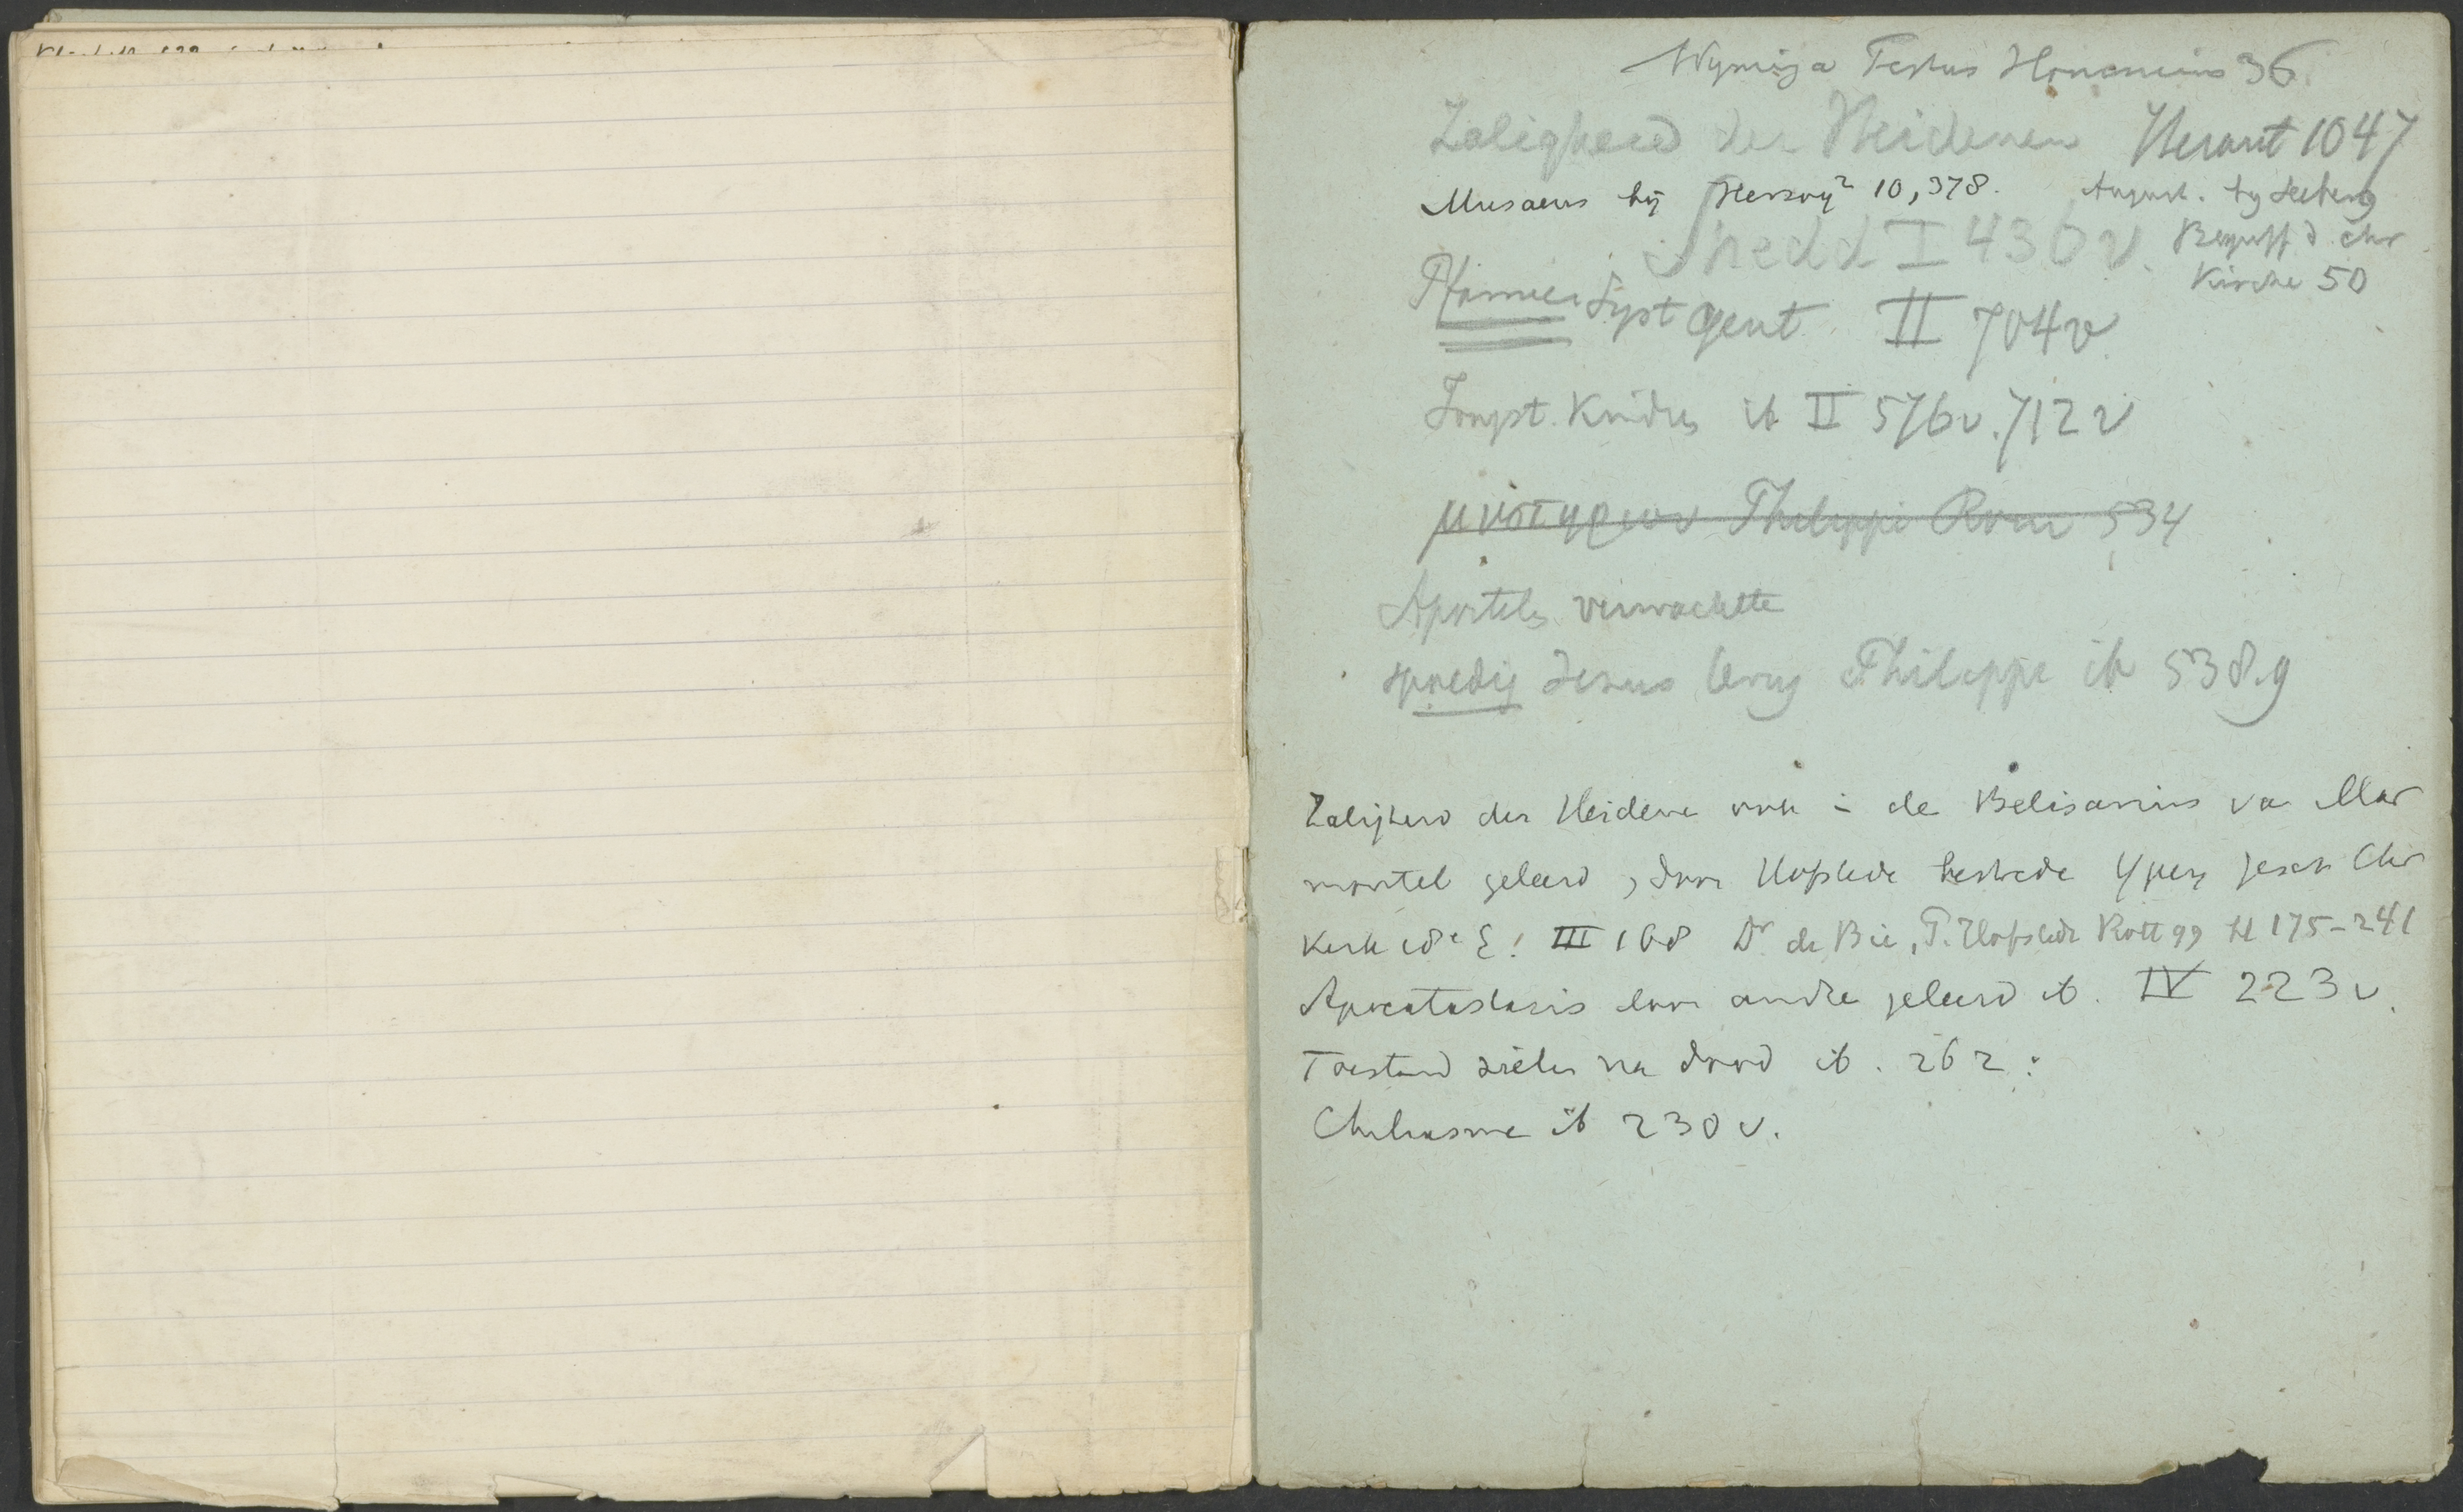 Wyminga Festus Hommius 36.
Zaligheid der Heidenen Heraut 1047
Musaeus bij Herzog² 10,378. August. by Seeberg
Shedd I 436 v. Begriff d. chr
Kirche 50
Pfanner Syst gent II 704v.
Jongst. Kindes ib II 576v. 712 v
μυστηριον Philippi Rom 534
Apostels verwachtte
spoedig Jezus terug Philippi ib 538.9
Zaligheid der Heidene ook in de Belisarius va Mar
montel geleerd, door Hofstede bestrede Ypeij Gesch Chr
Kerk 18e E. III 168 Dr de Bie, P. Hofstede Rott 99 bl 175-241
Apocatastasis door andre geleerd ib. IV 223 v.
Toestand zielen na dood ib. 262.
Chiliasme ib 230 v.